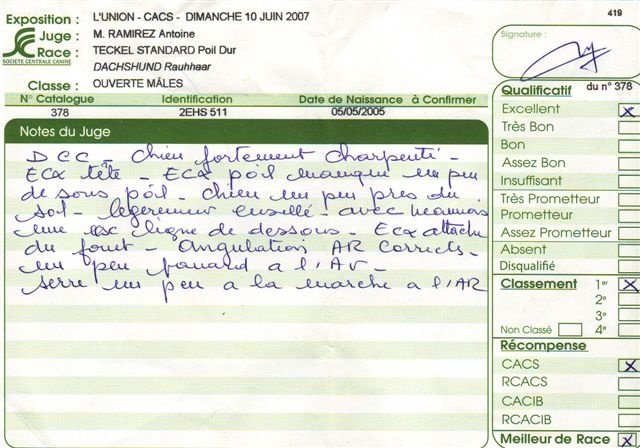 419
Exposition : L'UNION - CACS - DIMANCHE 10 JUIN 2007
Juge : M. RAMIREZ Antoine
Race : TECKEL STANDARD Poil Dur
SOCIÉTÉ CENTRALE CANINE
DACHSHUND Rauhhaar
Classe : OUVERTE MÂLES
N° Catalogue Identification Date de Naissance à Confirmer
378 2EHS 511 05/05/2005
Notes du Juge
DCC - Chien fortement charpenté -
Ecx tête - Ecx poil manque un peu
de sous poil - chien un peu près du
sol - légèrement ensellé - avec
une exc ligne de dessous - Ecx attache
du fouet - angulation AR corrects -
un peu panard a l'AV -
serre un peu a la marche a l'AR
Signature :
Qualificatif du n° 378
Excellent X
Très Bon
Bon
Assez Bon
Insuffisant
Très Prometteur
Prometteur
Assez Prometteur
Absent
Disqualifié
Classement 1er X
2e
3e
Non Classé 4e
Récompense
CACS X
RCACS
CACIB
RCACIB
Meilleur de Race X